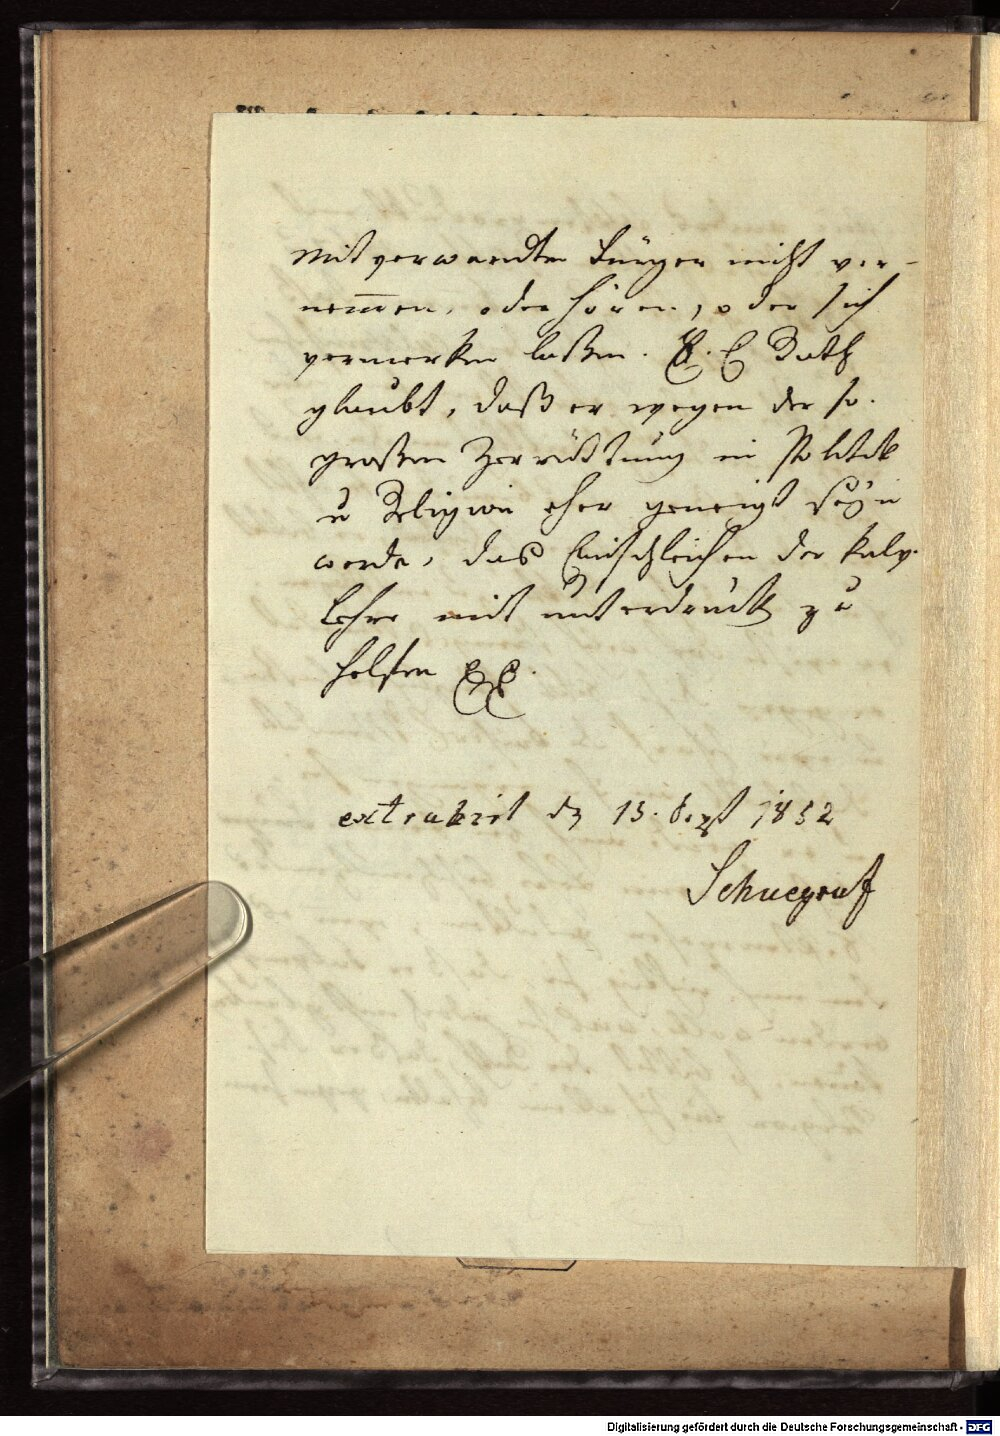 mitverwandten Bürger nicht ver-
nem̄en, oder hören, oder sich
vermerken laßen. E. E Rath
glaubt, daß er wegen der so
großen Zerrüttung in Politik
u Religion eher geneigt seÿn
werde, das Einschleichen der kalv.
Lehre mit unterdruck zu
helfen
extrahirt d 13. Sept 1832
Schuegraf
Digitalisierung gefördert durch die Deutsche Forschungsgemeinschaft - DFG